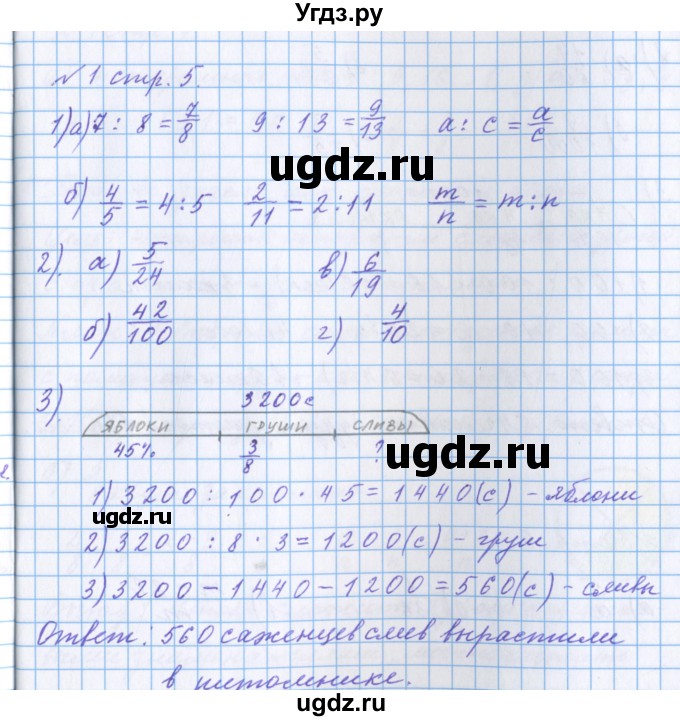 Угдз.ру
№ 1 стр. 5.
1) а) 7 : 8 = 7/8 9 : 13 = 9/13 а : с = а/с
ugdz.ru
б) 4/5 = 4 : 5 2/11 = 2 : 11 m/n = m : n
2). а) 5/24 в) 6/19
ugdz.ru
б) 42/100 г) 4/10
3). 3200с
ЯБЛОКИ ГРУШИ СЛИВЫ
45% 3/8 ?
ugdz.ru
2.
1) 3200 : 100 · 45 = 1440 (с) - яблони
2) 3200 : 8 · 3 = 1200 (с) - груш
3) 3200 - 1440 - 1200 = 560 (с) - сливы
Ответ: 560 саженцев слив вырастили
ugdz.ru
в питомнике.
ugdz.ru